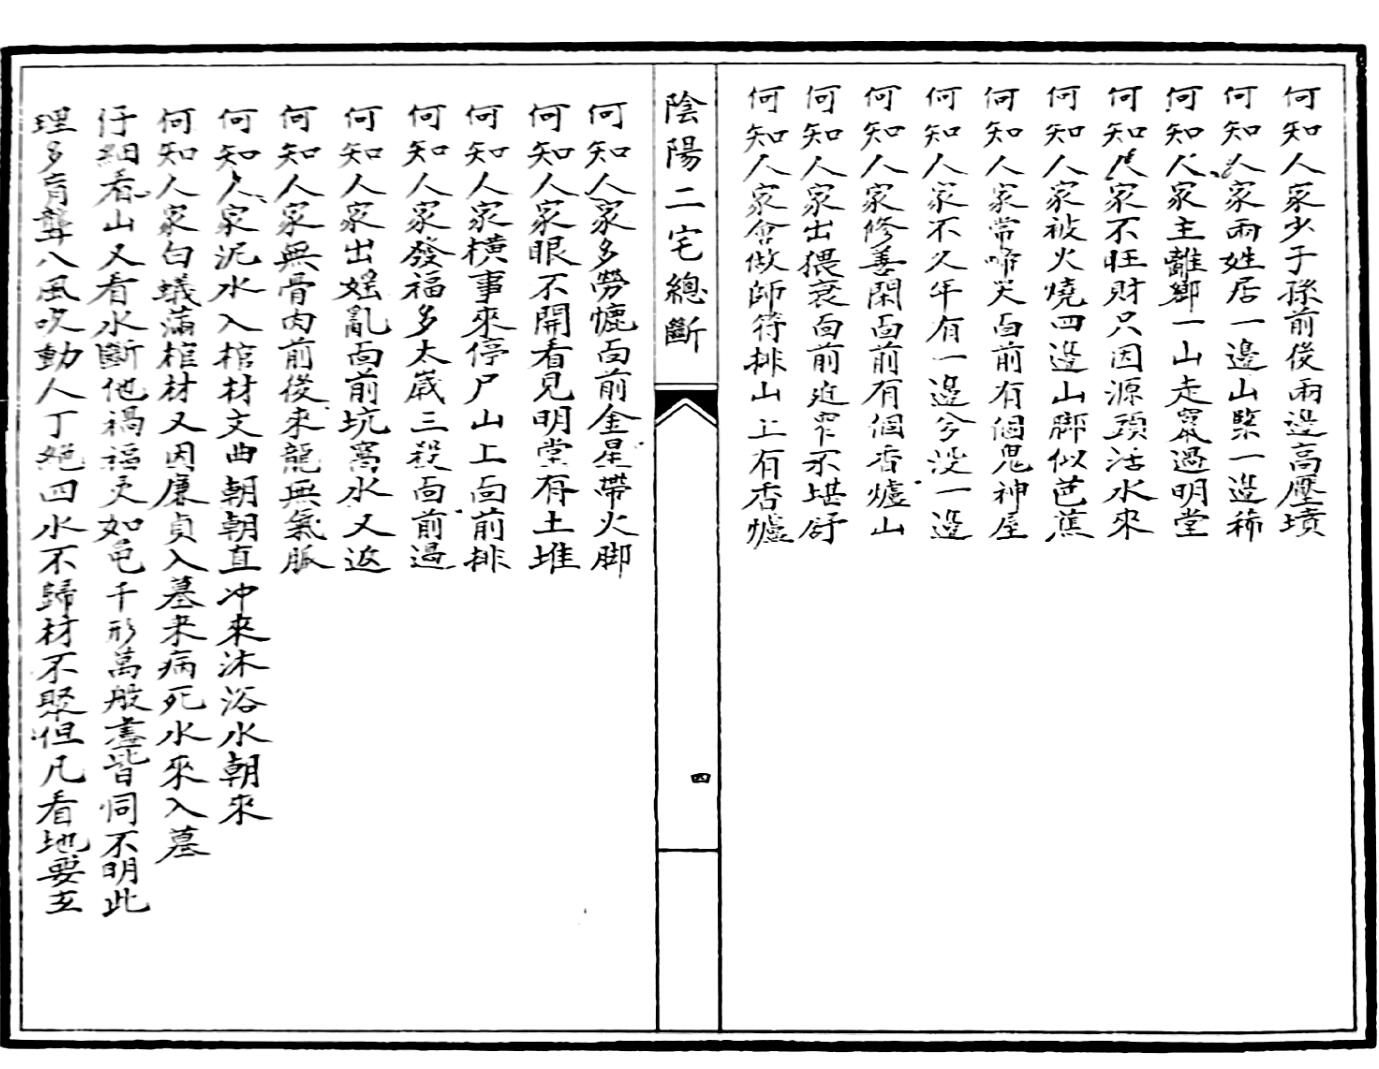 何知人家少子孫前後兩边高壓墳
何知人家兩姓居一邊山緊一边稀
何知人家主離鄉一山走竄過明堂
何知人家不旺財只因源頭活水來
何知人家被火燒四边山脚似芭蕉
何知人家常啼哭面前有個鬼神屋
何知人家不久年有一边兮没一边
何知人家修善閑面前有個香爐山
何知人家出猥衰面前逆窄不堪舒
何知人家會做師符排山上有香爐
陰陽二宅總斷
四
何知人家多勞慌面前金星帶火脚
何知人家眼不開看見明堂有土堆
何知人家橫事來停尸山上面前排
何知人家發福多太歲三殺面前過
何知人家出婬亂面前坑窩水又返
何知人家無骨肉前後來龍無氣脈
何知人家泥水入棺材文曲朝朝直冲來沐浴水朝來
何知人家白蟻滿棺材又因廉貞入墓来病死水來入墓
仔細看山又看水斷他禍福灵如龟千形萬般盡皆同不明此
理多盲聾八風吹動人丁絕四水不歸材不聚但凡看地要玄